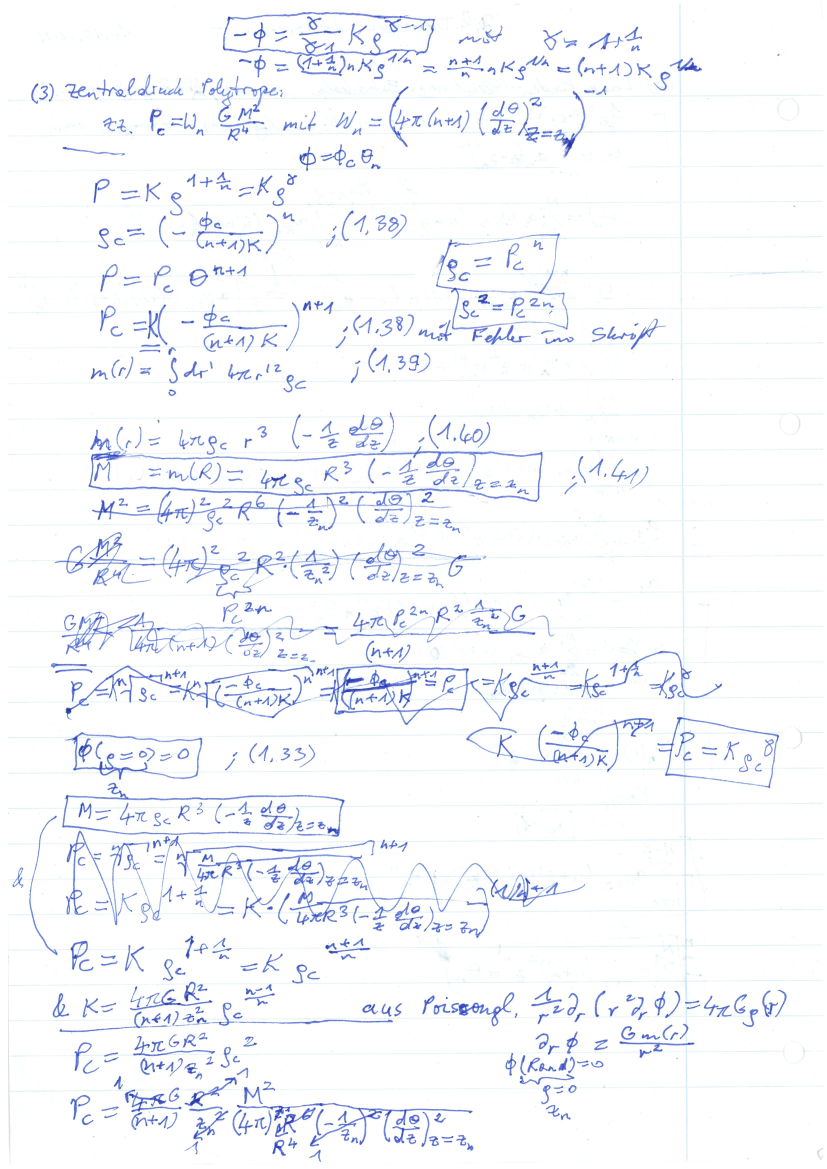 -ϕ = γ/(γ-1) K ρ^(γ-1) mit γ = 1+1/n
-ϕ = (1+1/n) n K ρ^(1/n) = (n+1)/n n K ρ^(1/n) = (n+1) K ρ^(1/n)
(3) Zentraldruck Polytrope:
zz. P_c = W_n GM²/R⁴ mit W_n = (4π(n+1) (dθ/dz)²_(z=z_n))^(-1)
ϕ = ϕ_c θ_n
P = K ρ^(1+1/n) = K ρ^γ
ρ_c = (- ϕ_c/((n+1)K))^n ; (1.38)
P = P_c θ^(n+1)
ρ_c = P_c^n
P_c = K(- ϕ_c/((n+1)K))^(n+1) ; (1.38) mit Fehler im Skript
ρ_c² = P_c^(2n)
m(r) = ∫_0^r dr' 4πr'² ρ_c ; (1.39)
m(r) = 4πρ_c r³ (-1/z dθ/dz) ; (1.40)
M = m(R) = 4πρ_c R³ (-1/z dθ/dz)_(z=z_n) ; (1.41)
M² = (4π)² ρ_c² R⁶ (-1/z_n)² (dθ/dz)²_(z=z_n)
G M²/R⁴ = (4π)² ρ_c² R² · (1/z_n²) (dθ/dz)²_(z=z_n) G
P_c^(2n)
GM²/R⁴ 1/(4π(n+1) (dθ/dz)²_(z=z_n)) = 4π P_c^(2n) R² 1/z_n² G/(n+1)
= P_c = K ρ_c^((n+1)/n) = K ρ_c^(1+1/n) = K ρ_c^γ
K (-ϕ_c/((n+1)K))^(n+1) = P_c = K ρ_c^γ
ϕ(ρ=0) = 0 ; (1.33)
z_n
M = 4πρ_c R³ (-1/z dθ/dz)_(z=z_n)
&
P_c = K ρ_c^(1+1/n) = K · (M/(4πR³(-1/z dθ/dz)_(z=z_n)))
P_c = K ρ_c^(1+1/n) = K ρ_c^((n+1)/n)
& K = 4πGR²/((n+1)z_n²) ρ_c^((n-1)/n) aus Poissongl. 1/r² ∂_r (r² ∂_r ϕ) = 4πGρ(r)
P_c = 4πGR²/((n+1)z_n²) ρ_c²
∂_r ϕ = G m(r)/r²
ϕ(Rand) = 0
ρ=0
z_n
P_c = 4πG/(n+1) R²/z_n² M²/((4π)² R⁶ (-1/z_n)² (dθ/dz)²_(z=z_n))
R⁴